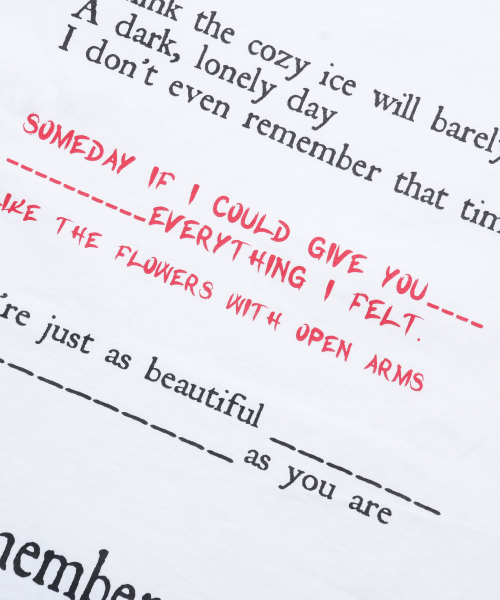 the cozy ice will barely
A dark, lonely day
I don't even remember that tim
SOMEDAY IF I COULD GIVE YOU----
--------EVERYTHING I FELT.
LIKE THE FLOWERS WITH OPEN ARMS
're just as beautiful _ _ _ _ _ _ _
_ _ _ _ _ _ _ _ _ as you are
member